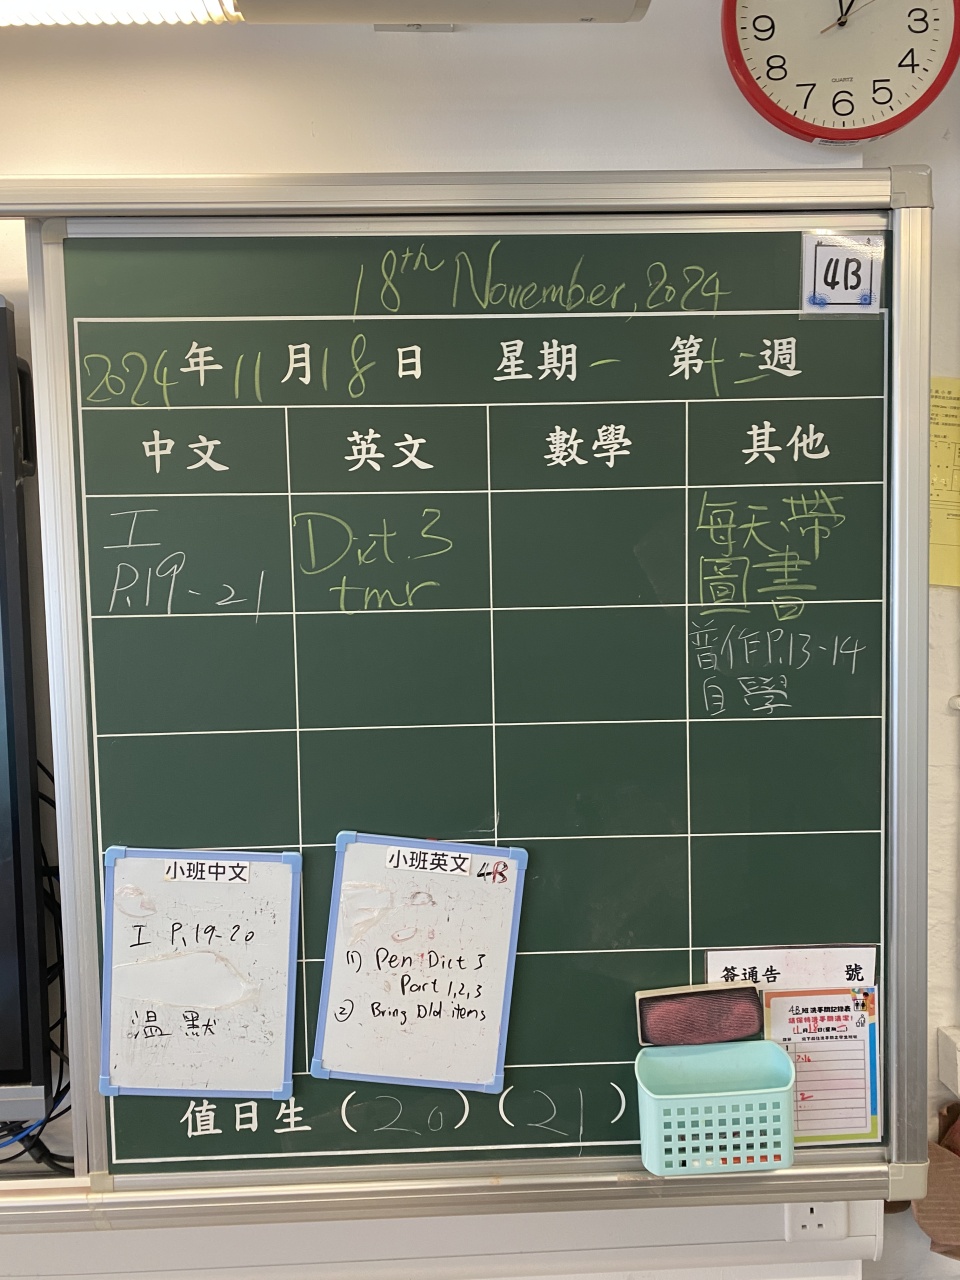 9
8
7
6
5
4
3
QUARTZ
18th November, 2024
4B
2024年11月18日 星期一 第十二週
中文 英文 數學 其他
I
P.19-21
Dict.3
tmr
每天帶
圖書
普作P.13-14
自學
小班中文
I P.19-20
温 默
小班英文
4B
(1) Pen Dict 3
Part 1,2,3
② Bring Old items
簽通告 號
4B班洗手間記錄表
值日生 (20) (21)